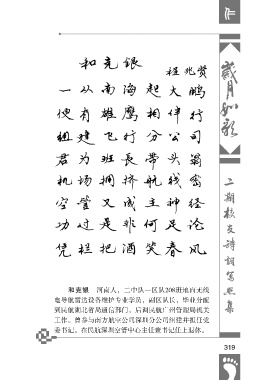 和克银
程兆贤
一从南海起大鹏
便有雄鹰相伴行
组建飞行分公司
君为班长带头翁
机场拥挤航线密
空管又成主神经
功过是非何足论
凭栏把酒笑春风
和克银 河南人，二中队一区队208班地面无线
电导航雷达设备维护专业学员，副区队长。毕业分配
到民航湖北省局通信部门，后调民航广州管理局机关
工作。曾参与南方航空公司深圳分公司组建并担任党
委书记。在民航深圳空管中心主任兼书记任上退休。
岁月如歌
二期校友诗词写照集
319